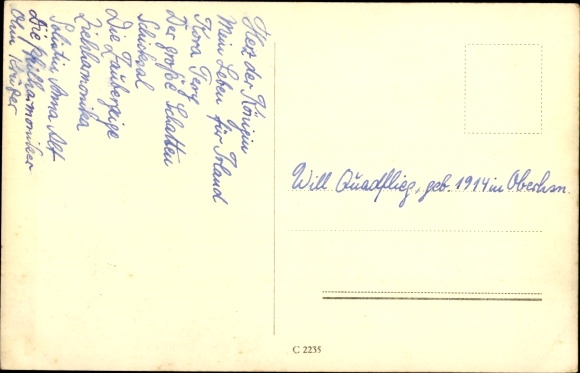 Herz der Königin
Mein Leben für Irland
Kora Terry
Der große Schatten
Schicksal
Die Zaubergeige
Ziehharmonika
Solistin Anna Alt
Die Philharmoniker
Ohm Krüger
Will Quadflieg, geb. 1914 in Oberhsn.
C 2235